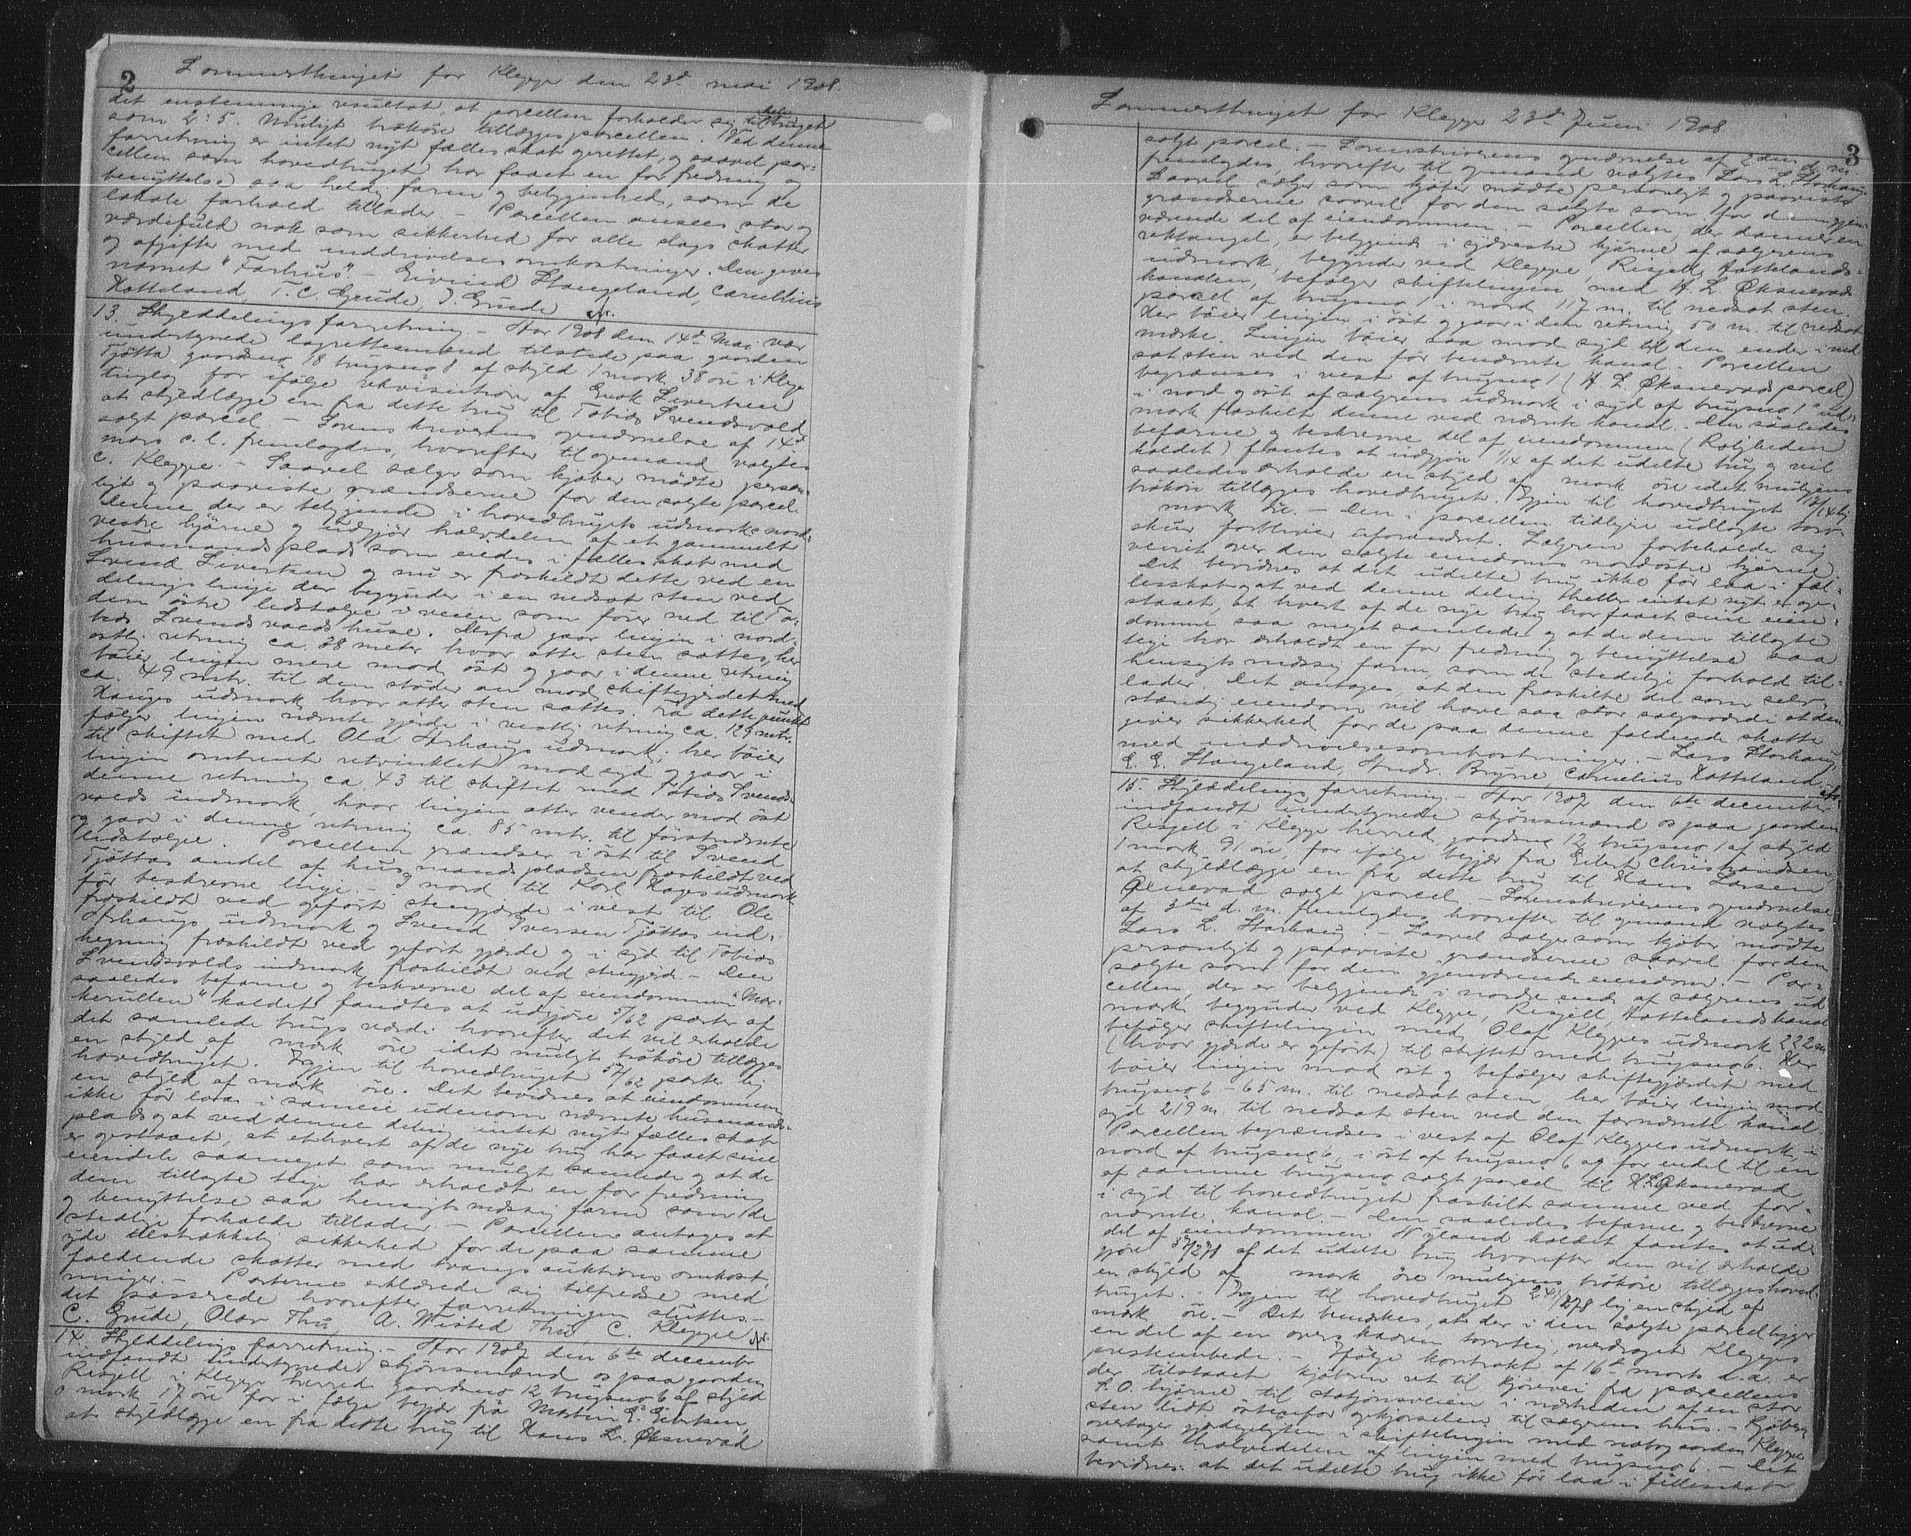 2
Sommerthinget for Kleppe den 23d mai 1908.
det enstemmige resultat, at parcellen forholder sig til hovedbruget
som 2:5. Muligt trækøre tillægges parcellen. Ved denne
forretning er intet nyt fællesskab oprettet, og saavel par-
cellen som hovedbruget har faaet en for fredning og
benyttelse saa heldig form og beliggenhed, som de
lokale forhold tillader. – Parcellen ansees stor og
værdifuld nok som sikkerhed for alle slags skatter
og afgifter med inddrivelses omkostninger. Den gives
navnet "Farhus". – Eivind Stangeland, Cornelius
Hatteland, T. C. Grude, J. Grude
13. Skylddelings forretning. – Aar 1908 den 14d Mai var
undertegnede lagrettesmænd tilstede paa gaarden
Tjøtta gaardsno 18 brugsno 8 af skyld 1 mark 38 øre i Klepp
tinglag for ifølge rekvisition af Enok Sivertsen
at skyldlægge en fra dette brug til Tobias Svendsvold
solgt parcel. – Sorenskriverens opnævnelse af 14d
mars c. l. fremlagdes, hvorefter til formand valgtes
C. Kleppe. – Saavel sælger som kjøber mødte person-
ligt og paaviste grændserne for den solgte parcel.
Denne der er beliggende i hovedbrugets udmark nord-
vestre hjørne og udgjør halvdelen af et gammelt
husmandsplads som eiedes i fællesskab med
Svend Sivertsen og nu er fraskildt dette ved en
delingslinje der begynder i en nedsat sten ved
den østre ledstolpe i veien som fører ned til To-
bias Svendsvolds huse. Derfra gaar linjen i nord-
ostlig retning ca. 38 meter hvor atter sten sattes, her
bøier linjen mere mod øst og gaar i denne retning
ca. 49 mtr. til den støder an mod skiftegjærdet med
Hauges udmark hvor atter sten sattes. Fra dette punkt
følger linjen nævnte gjærde i vestlig retning ca. 129 mtr.
til skiftet med Ola Storhaugs udmark; her bøier
linjen omtrent retvinklet mod syd og gaar i
denne retning ca. 43 til skiftet med Tobias Svends-
volds indmark, hvor linjen atter vender mod øst
og gaar i denne retning ca. 85 mtr. til førstnævnte
ledstolpe. Parcellen grændser i øst til Svend
Tjøttas andel af husmandspladsen fraskildt ved
før beskrevne linje. – I nord til Karl Hages udmark
fraskildt ved opført stengjærde i vest til Ole
Storhaugs udmark og Svend Iversen Tjøttas ind-
hegning fraskildt ved opført gjærde og i syd til Tobias
Svendsvolds indmark fraskildt ved stengjærde – Den
saaledes befarne og beskrevne del af eiendommen "Mar-
kerullen" kaldet fandtes at udgjøre 5/62 parter af
det samlede brugs værdi hvorefter det vil erholde
en skyld af mark øre idet muligt trækøre tillægges
hovedbruget. Igjen til hovedbruget 57/62 parter lig
en skyld af mark øre. Det bevidnes at eiendommen
ikke før laa i sameie udenom nævnte husmands-
plads og at ved denne deling intet nyt fællesskab
er opstaaet, at ethvert af de nye brug har faaet sine
eiendele saameget som muligt samlede og at de
dem tillagte teige har erholdt en for fredning
og benyttelse saa hensigtsmæssig form som de
stedlige forholde tillader. – Parcellen antages at
yde tilstrækkelig sikkerhed for de paa samme
faldende skatter med tvangsauktions omkost-
ninger. – Parterne erklærede sig tilfredse med
det passerede hvorefter forretningen sluttes. –
C. Grude, Olav Thu, A. Wisted Thu C. Kleppe
14. Skylddelings forretning. – Aar 1907 den 6te december
indfandt undertegnede skjønsmænd os paa gaarden
Risjell i Kleppe herred gaardsno 12 brugsno 6 af skyld
0 mark 17 øre for i følge begjær fra Martin E. Eiriksen
at skyldlægge en fra dette brug til Hans L. Øksnevad
3
Sommerthinget for Kleppe 23d Juni 1908
solgt parcel. – Sorenskriverens opnævnelse af 2den d. m.
fremlagdes hvorefter til formand valgtes Lars L. Storhaug.
Saavel sælger som kjøber mødte personligt og paaviste
grændserne saavel for den solgte som for den gjen-
værende del af eiendommen. – Parcellen, der danner en
rektangel, er beliggende i sydvestre hjørne af sælgerens
udmark, begynder ved Kleppe Risjell Hattelands-
kanalen, befølger skiftelinjen med H. L. Øksnevads
parcel af brugsno 1 i nord 117 m. til nedsat sten.
Her bøier linjen i øst og gaar i den retning 50 m. til nedsat
mærke. Linjen bøier saa mod syd til den ender i ned
sat sten ved den før benævnte kanal. Parcellen
begrænses i vest af brugsno 1 (H. L. Øksnevads parcel)
i nord og øst af sælgerens udmark i syd af brugsno 1's ud-
mark fraskilt denne ved nævnte kanal. Den saaledes
befarne og beskrevne del af eiendommen (Roligheden
kaldet) fandtes at udgjøre 1/14 af det udelte brug og vil
saaledes erholde en skyld af mark øre idet muligens
trækøre tillægges hovedbruget. Igjen til hovedbruget 13/14 lig
mark øre. – Den i parcellen tidligere udlagte torv-
skur forbliver uforandret. Sælgeren forbeholder sig
veiret over den solgte eiendoms nordøstre hjørne
Det bevidnes at det udelte brug ikke før laa i fæl-
lesskab og at ved denne deling heller intet nyt er op-
staaet, at hvert af de nye brug har faaet sine eien-
domme saa meget samlede og at de dem tillagte
teige har erholdt en for fredning og benyttelse saa
hensigtsmæssig form, som de stedlige forhold til-
lader. Det antages, at den fraskilte del som selv-
stændig eiendom vil have saa stor salgsværdi at den
giver sikkerhed for de paa denne faldende skatte
med inddrivelsesomkostninger. – Lars Storhaug,
E. E. Stangeland, Andr. Bryne, Cornelius Hatteland
15. Skylddelings forretning. – Aar 1907 den 6te december
indfandt undertegnede skjønsmænd os paa gaarden
Risjell i Kleppe herred, gaardsno 12 brugsno 1 af skyld
1 mark 91 øre, for ifølge begjær fra Eilert Christiansen
at skyldlægge en fra dette brug til Hans Larsen
Øksnevad solgt parcel. – Sorenskriverens opnævnelse
af 2den d. m. fremlagdes hvorefter til formand valgtes
Lars L. Storhaug. – Saavel sælger som kjøber mødte
personligt og paaviste grændserne saavel for den
solgte som for den gjenværende eiendom. – Par-
cellen der er beliggende i nordre ende af sælgerens ud-
mark, begynder ved Kleppe, Risjell, Hattelands kanal
befølger skiftelinjen med Olaf Kleppes udmark 222 m.
(hvor gjærde er opført) til skiftet med brugsno 6. Her
bøier linjen mod øst og befølger skiftegjærdet med
brugsno 6 – 65 m. til nedsat sten, her bøier linjen mod
syd 219 m til nedsat sten ved den førnævnte kanal
Parcellen begrændses i vest af Olaf Kleppes udmark, i
nord af brugsno 6, i øst af brugsno 6 og for endel til en
af samme brugsno solgt parcel til H. L. Øksnevad
i syd til hovedbruget fraskilt samme ved før-
nævnte kanal. – Den saaledes befarne og beskrevne
del af eiendommen Nyland kaldet fantes at ud-
gjøre 37/278 af det udelte brug hvorefter den vil erholde
en skyld af mark øre muligens trækøre tillægges hoved-
bruget. – Igjen til hovedbruget 241/278 lig en skyld af
mark øre. – Det bemærkes, at der i den solgte parcel ligger
en del af en overskaaren torvteig, overdraget Kleppes
presteembede. – Ifølge kontrakt af 16de marts d. a. er
der tilstaaet kjøberen ret til kjørevei fra parcellens
S. O. hjørne til stasjonsveien i nærheden af en stor
sten lidt østenfor opkjørselen til sælgerens hus. – Kjøberen
overtager gjærdepligten i skiftelinjen med nabogaarden Kleppe
samt halvdelen af linjen med brugsno 6. – Det
bevidnes at det udelte brug ikke før laa i fællesskab